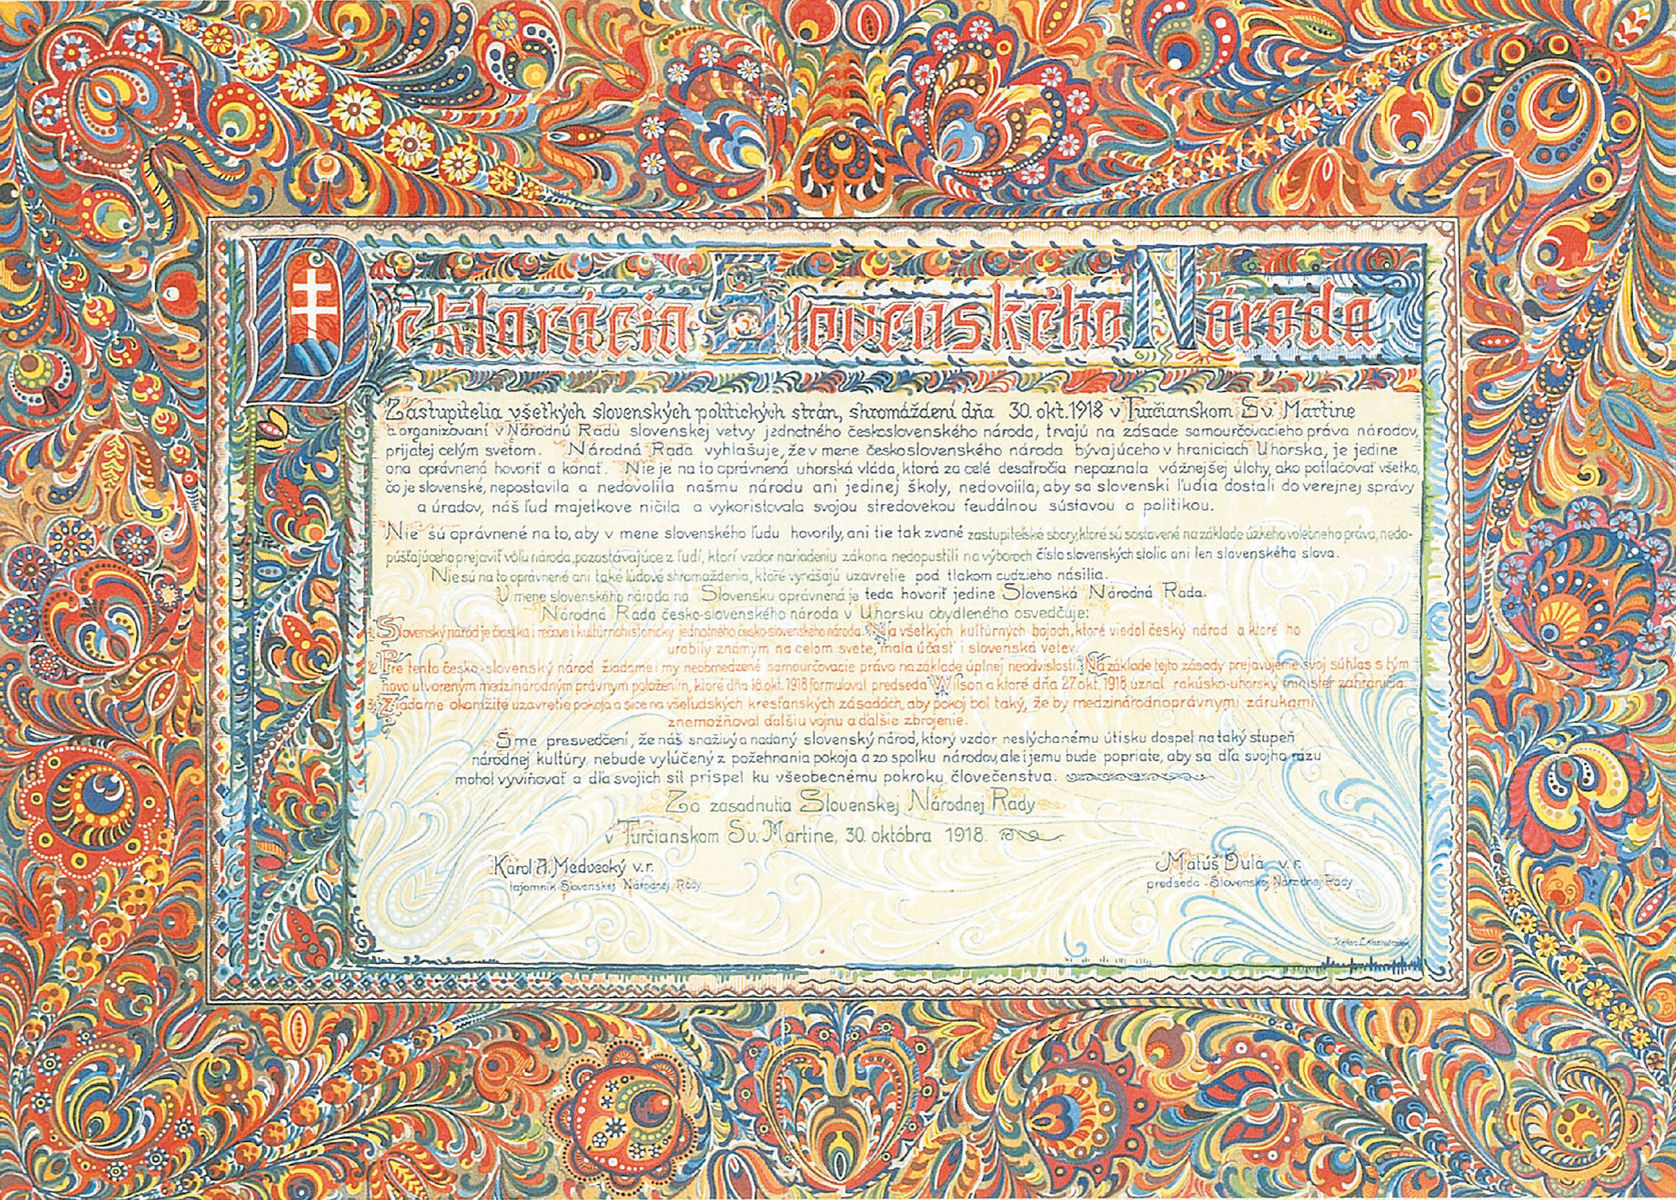 Deklarácia Slovenského Národa
Zástupitelia všetkých slovenských politických strán, shromáždení dňa 30. okt. 1918 v Turčianskom Sv. Martine
a organizovaní v Národnú Radu slovenskej vetvy jednotného československého národa, trvajú na zásade samourčovacieho práva národov,
prijatej celým svetom. Národná Rada vyhlašuje, že v mene československého národa bývajúceho v hraniciach Uhorska, je jedine
ona oprávnená hovoriť a konať. Nie je na to oprávnená uhorská vláda, ktorá za celé desaťročia nepoznala vážnejšej úlohy, ako potlačovať všetko,
čo je slovenské, nepostavila a nedovolila našmu národu ani jedinej školy, nedovolila, aby sa slovenskí ľudia dostali do verejnej správy
a úradov, náš ľud majetkove ničila a vykorisťovala svojou stredovekou feudálnou sústavou a politikou.
Nie sú oprávnené na to, aby v mene slovenského ľudu hovorily, ani tie tak zvané zastupiteľské sbory, ktoré sú sostavené na základe úzkeho volebného práva, nedo-
púšťajúceho prejaviť vôľu národa, pozostávajúce z ľudí, ktorí vzdor nariadeniu zákona nedopustili na výboroch číslo slovenských stolíc ani len slovenského slova.
Nie sú na to oprávnené ani také ľudové shromaždenia, ktoré vynášajú uzavretie pod tlakom cudzieho násilia.
V mene slovenského národa na Slovensku oprávnená je teda hovoriť jedine Slovenská Národná Rada.
Národná Rada česko-slovenského národa v Uhorsku obydleného osvedčuje:
1. Slovenský národ je čiastka i rečove i kultúrnohistoricky jednotného česko-slovenského národa. Na všetkých kultúrnych bojoch, ktoré viedol český národ a ktoré ho
urobily známym na celom svete, mala účasť i slovenská vetev.
2. Pre tento česko-slovenský národ žiadame i my neobmedzené samourčovacie právo na základe úplnej neodvislosti. Na základe tejto zásady prejavujeme svoj súhlas s tým
novo utvoreným medzinárodným právnym položením, ktoré dňa 18. okt. 1918 formuloval predseda Wilson a ktoré dňa 27. okt. 1918 uznal rakúsko-uhorský minister zahraničia.
3. Žiadame okamžité uzavretie pokoja a síce na všeľudských kresťanských zásadách, aby pokoj bol taký, že by medzinárodnoprávnymi zárukami
znemožňoval ďalšiu vojnu a ďalšie zbrojenie.
Sme presvedčení, že náš snaživý a nadaný slovenský národ, ktorý vzdor neslýchanému útisku dospel na taký stupeň
národnej kultúry, nebude vylúčený z požehnania pokoja a zo spolku národov, ale i jemu bude popriate, aby sa dľa svojho rázu
mohol vyvíňovať a dľa svojich síl prispel ku všeobecnému pokroku človečenstva.
Zo zasadnutia Slovenskej Národnej Rady
v Turčianskom Sv. Martine, 30. októbra 1918.
Karol A. Medvecký v.r.
tajomník Slovenskej Národnej Rady
Matúš Dula v. r.
predseda Slovenskej Národnej Rady